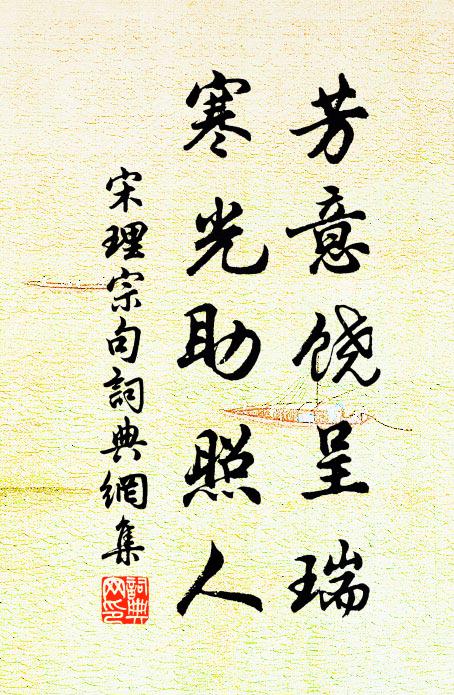 芳意饶呈瑞
寒光助照人
宋理宗句詞典網集
詞典网印